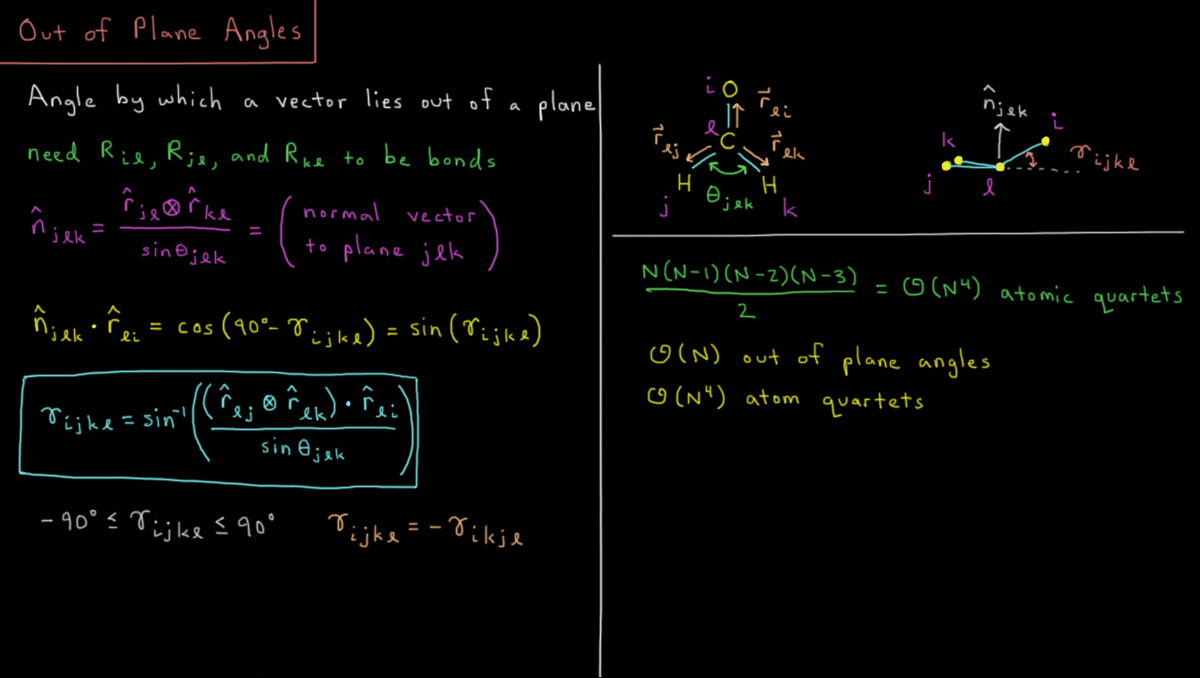 Out of Plane Angles
Angle by which a vector lies out of a plane
need R_iℓ, R_jℓ, and R_kℓ to be bonds
n̂_jℓk = (r̂_jℓ ⊗ r̂_kℓ) / sinθ_jℓk = (normal vector to plane jℓk)
n̂_jℓk · r̂_ℓi = cos(90° - γ_ijkℓ) = sin(γ_ijkℓ)
γ_ijkℓ = sin⁻¹(((r̂_ℓj ⊗ r̂_ℓk) · r̂_ℓi) / sin θ_jℓk)
-90° ≤ γ_ijkℓ ≤ 90°
γ_ijkℓ = -γ_ikjℓ
i O r⃗_ℓi
r⃗_ℓj ℓ C r⃗_ℓk
H θ_jℓk H
j k
n̂_jℓk
k i
γ_ijkℓ
j ℓ
N(N-1)(N-2)(N-3) / 2 = O(N⁴) atomic quartets
O(N) out of plane angles
O(N⁴) atom quartets